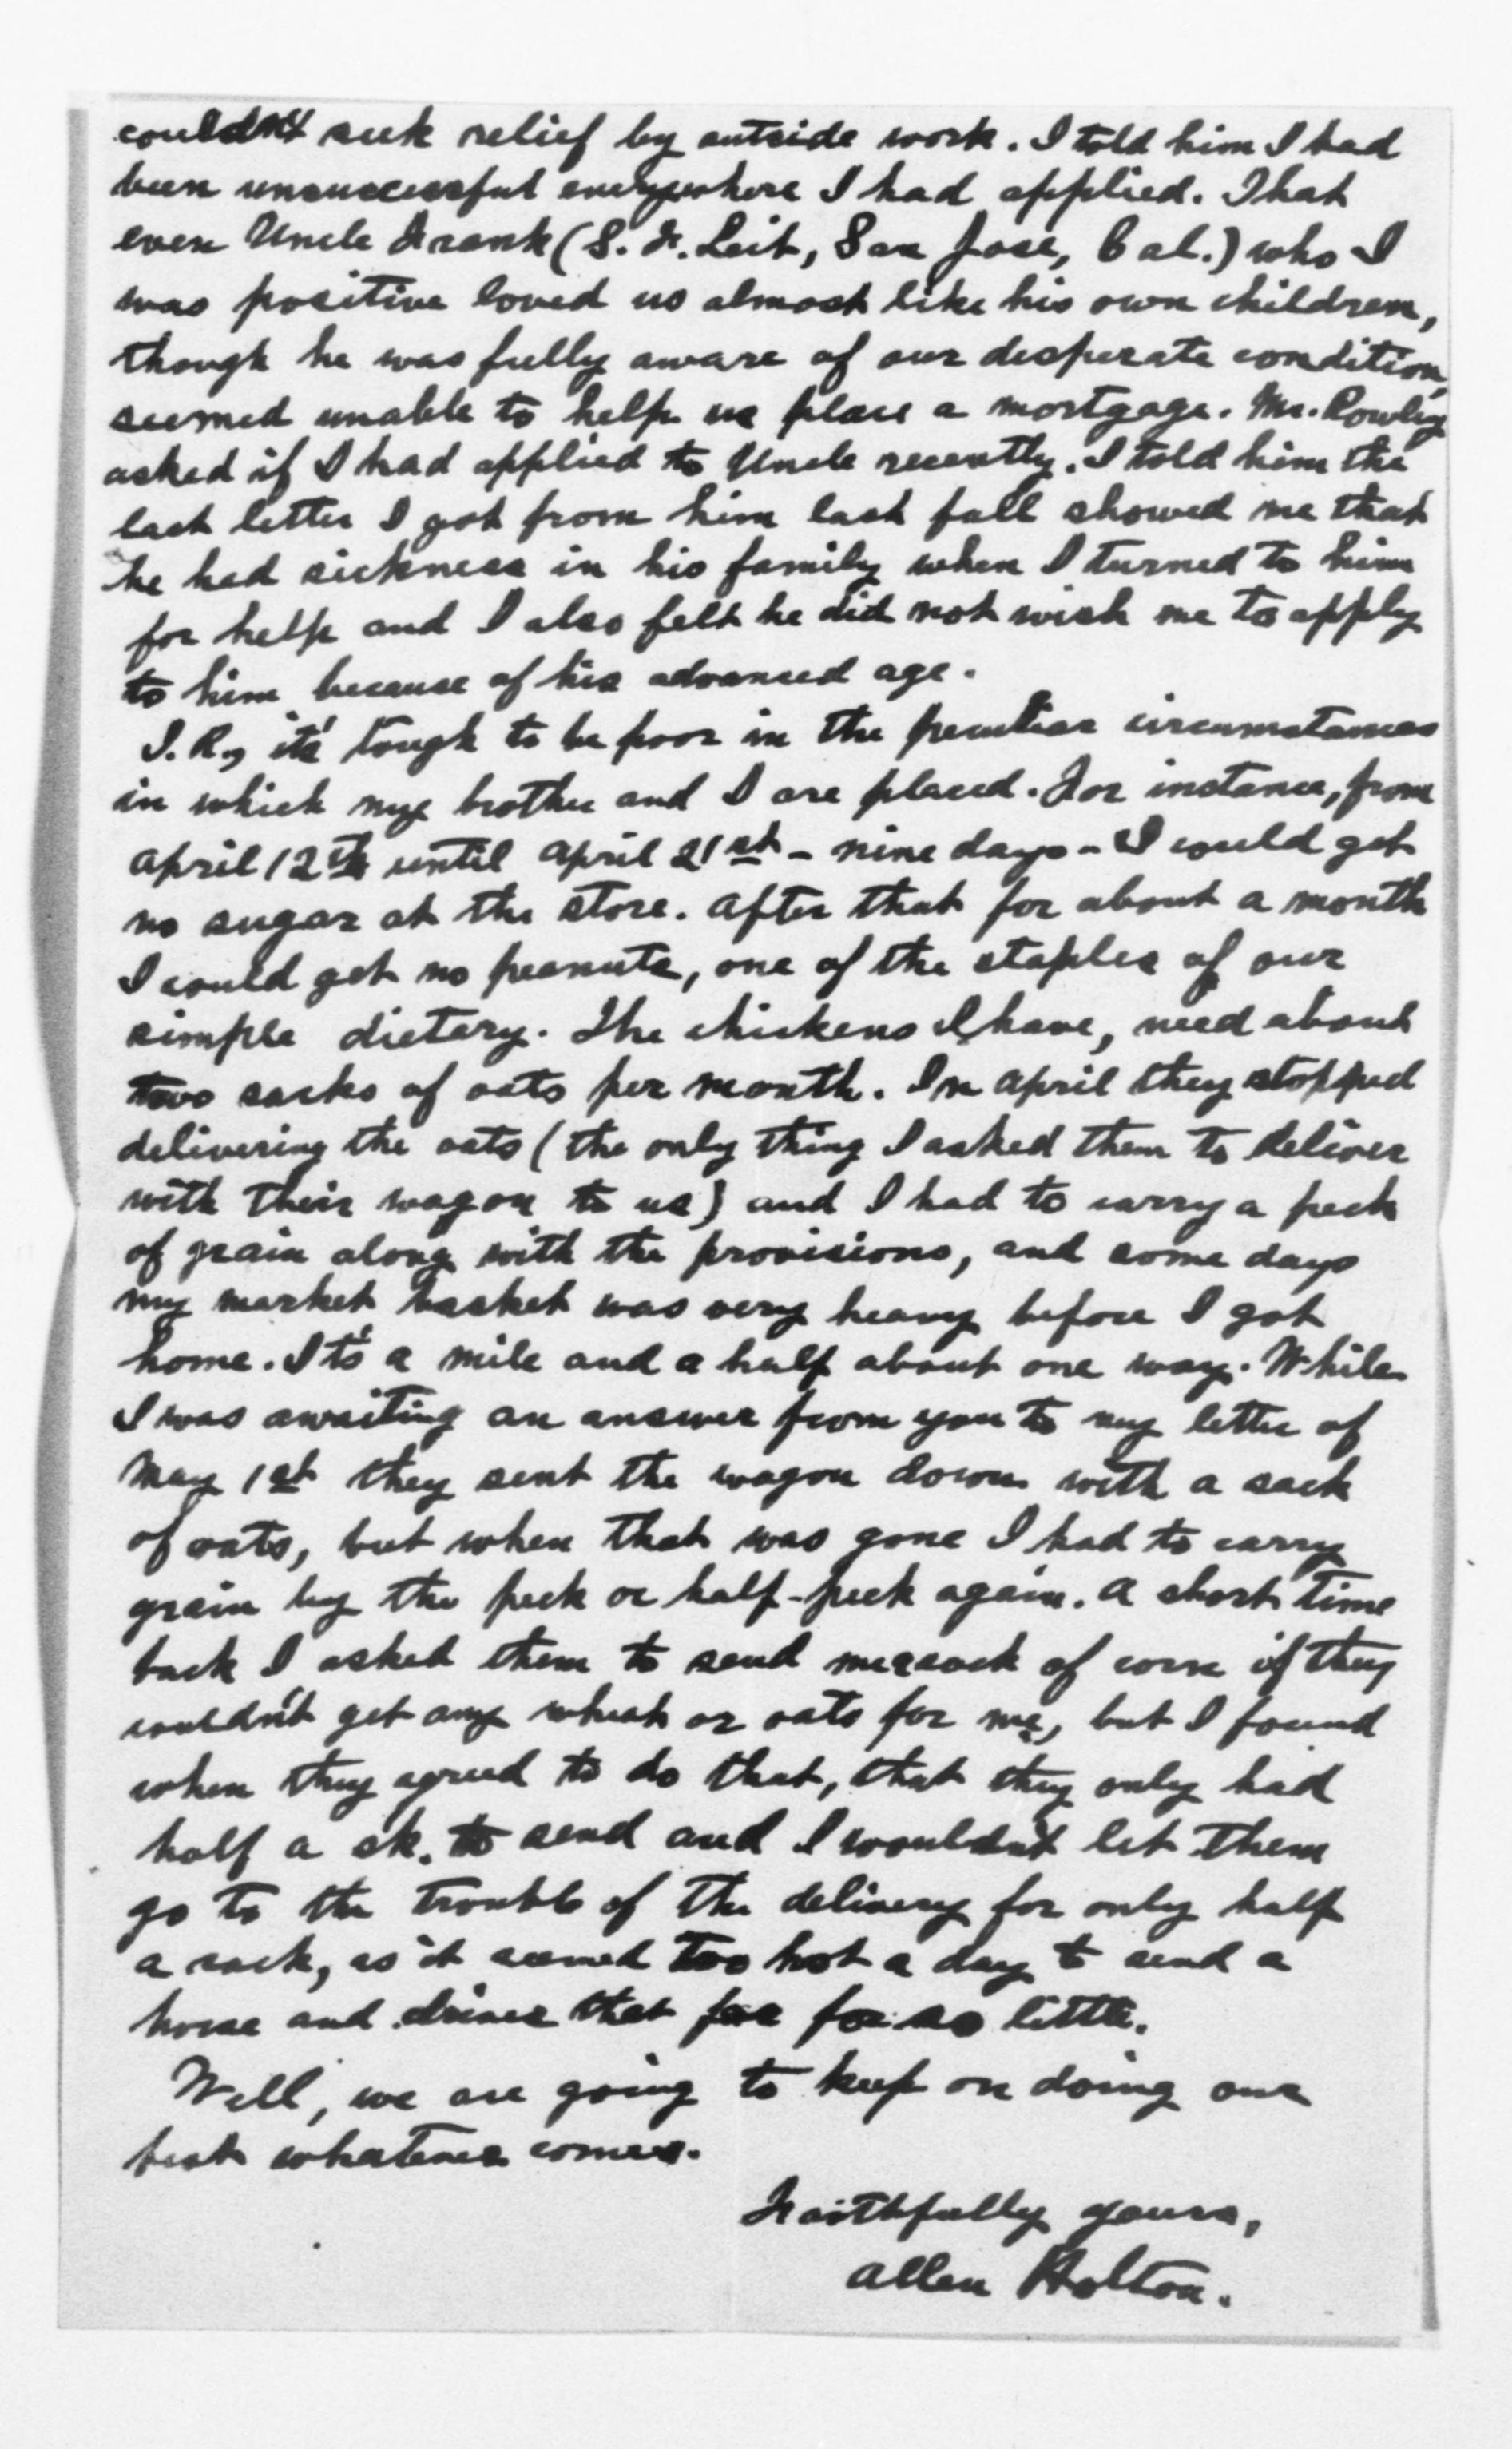 couldn't seek relief by outside work. I told him I had
been unsuccessful everywhere I had applied. That
even Uncle Frank (S. F. Leib, San Jose, Cal.) who I
was positive loved us almost like his own children,
though he was fully aware of our desperate condition,
seemed unable to help us place a mortgage. Mr. Rowley
asked if I had applied to Uncle recently. I told him the
last letter I got from him last fall showed me that
he had sickness in his family when I turned to him
for help and I also felt he did not wish me to apply
to him because of his advanced age.
I. R., it's tough to be poor in the peculiar circumstances
in which my brother and I are placed. For instance, from
April 12th until April 21st - nine days - I could get
no sugar at the store. After that for about a month
I could get no peanuts, one of the staples of our
simple dietary. The chickens I have, need about
two sacks of oats per month. In April they stopped
delivering the oats (the only thing I asked them to deliver
with their wagon to us) and I had to carry a peck
of grain along with the provisions, and some days
my market basket was very heavy before I got
home. It's a mile and a half about one way. While
I was awaiting an answer from you to my letter of
May 1st they sent the wagon down with a sack
of oats, but when that was gone I had to carry
grain by the peck or half-peck again. A short time
back I asked them to send me a sack of corn if they
couldn't get any wheat or oats for me, but I found
when they agreed to do that, that they only had
half a sk. to send and I wouldn't let them
go to the trouble of the delivery for only half
a sack, as it seemed too hot a day to send a
horse and driver that far for so little.
Well, we are going to keep on doing our
best whatever comes.
Faithfully yours,
Allen Holton.